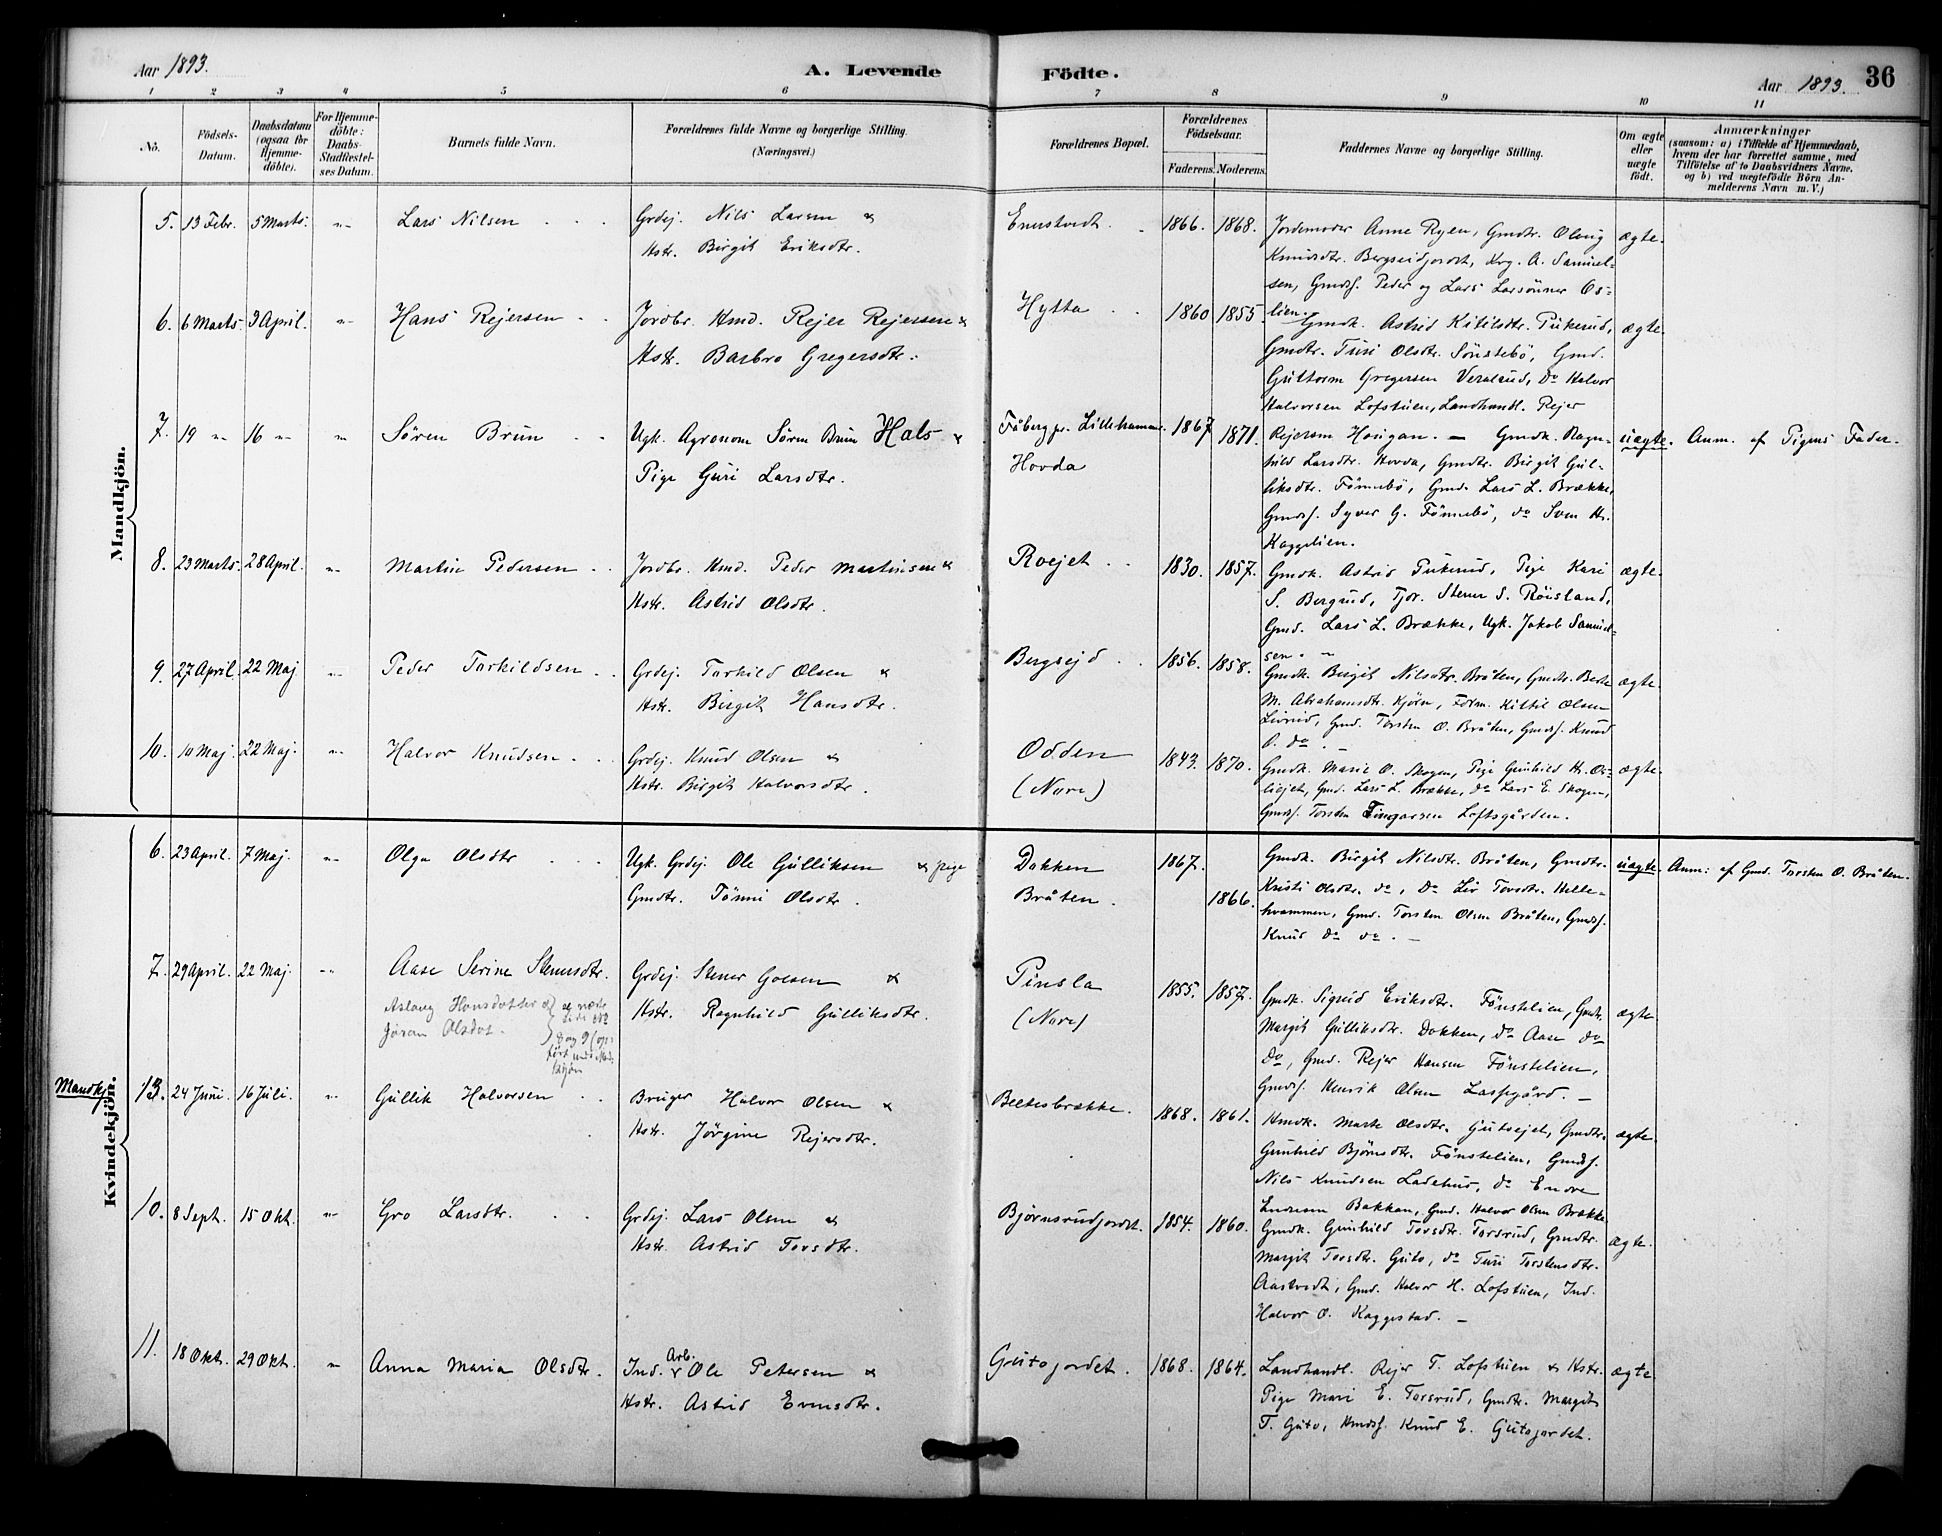 Aar 1893.
A. Levende Födte.
Aar 1893.
36
1 2 3 4 5 6 7 8 9 10 11
No.
Födsels-Datum.
Daabsdatum (ogsaa for Hjemmedöbte).
For Hjemmedöbte: Daabs-Stadfestelses Datum.
Barnets fulde Navn.
Forældrenes fulde Navne og borgerlige Stilling. (Næringsvei.)
Forældrenes Bopæl.
Forældrenes Födselsaar.
Faderens. Moderens.
Faddernes Navne og borgerlige Stilling.
Om ægte eller uægte födt.
Anmærkninger
(saasom: a) i Tilfælde af Hjemmedaab,
hvem der har forrettet samme, med
Tilföielse af to Daabsvidners Navne,
og b) ved uægtefödte Börn Anmelderens Navn m. V.)
Mandkjön.
5. 13 Febr. 5 Marts. Lars Nilsen
Grdej. Nils Larsen &
Hstr. Birgit Eriksdtr.
1866. 1868.
Jordemoder Anne Ryen, Gmdtr. Olaug
Knudsdtr. Bergseidjordet, Ung. A. Samuel-
sen, Gmds. Peder og Lars Larsönner Os-
lien.
ægte.
6. 6 Marts 3 April. Hans Rejersen
Jordbr. Hmd. Rejer Rejersen &
Hstr. Barbro Gregersdtr.
Hytta
1860 1855
Gmdk. Astrid Kitilsdtr. Tukerud,
Gmdtr. Turi Olsdtr. Sönstebö, Gmd.
Guttorm Gregersen Veralrud, Do Halvor
Halvorsen Lofstuen, Landhandl. Rejer
Rejersen Haugan.
ægte.
7. 19 -"- 16 -"- Sören Brun
Ugk. Agronom Sören Brun Hals &
Pige Guri Larsdtr.
Fåberg pr. Lillehammer.
Hovda
1867 1871.
Gmdk. Ragn-
hild Larsdtr. Hovda, Gmdtr. Birgit Gul-
liksdtr. Fönnebö, Gmd. Lars L. Brække,
Gmds. Syver G. Fönnebö, do Sven Hr.
Kaggelien.
uægte. Anm. af Pigens Fader.
8. 23 Marts. 28 April. Martin Pedersen
Jordbr. Hmd. Peder Martinsen &
Hstr. Astrid Olsdtr.
Roejet
1830. 1857.
Gmdk. Astrid Tukerud, Pige Kari
S. Bergrud, Tjor. Stener S. Röisland,
Gmd. Lars L. Brække, Ugk. Jakob Samuel-
sen.
ægte.
9. 27 April. 22 Maj Peder Torkildsen
Grdej. Torkild Olsen &
Hstr. Birgit Hansdtr.
Bergsejd
1856. 1858.
Gmdk. Birgit Nilsdtr. Bråten, Gmdtr. Berte
M. Abrahamsdtr. Kjörn, Form. Kittil Olsen
Livrud, Gmd. Torsten O. Bråten, Gmds. Knud
O. do.
ægte.
10. 10 Maj. 22 Maj. Halvor Knudsen
Grdej. Knud Olsen &
Hstr. Birgit Halvorsdtr.
Odden
(Nore)
1843. 1870.
Gmdk. Marie O. Skogen, Pige Gunhild Hr. Os-
liejet, Gmd. Lars L. Brække, do Lars E. Skogen,
Gmds. Torsten Fingarsen Loftsgården.
ægte.
Kvindekjön.
6. 23 April. 7 Maj. Olga Olsdtr
Ugk. Grdej. Ole Gulliksen & pige
Gmdtr. Tönni Olsdtr.
Dokken
Bråten.
1867. 1866.
Gmdk. Birgit Nilsdtr. Bråten, Gmdtr.
Kristi Olsdtr. do, Do Liv Tovsdtr. Helle-
hvammen, Gmd. Torsten Olsen Bråten, Gmds.
Knud do do.
uægte. Anm: af Gmd. Torsten O. Bråten.
7. 29 April. 22 Maj. Aase Serine Stenersdtr.
Grdej. Stener Goesen &
Hstr. Ragnhild Gulliksdtr.
Aslaug Hansdotter og
Jøran Olsdot.
se næste
side No
8 og 9 (op-
ført under Mand-
kjøn
Pinsla
(Nore)
1855. 1857.
Gmdk. Sigrid Eriksdtr. Fönstelien, Gmdtr.
Margit Gulliksdtr. Dokken, do Aase do
do, Gmd. Rejer Hansen Fönstelien,
Gmds. Henrik Olsen Lassegård.
ægte
Mandkj. 13. 24 Juni. 16 Juli. Gullik Halvorsen
Bruger Halvor Olsen &
Hstr. Jörgine Rejersdtr.
Beltesbrække.
1868. 1861.
Hmdk. Marte Olsdtr. Gutuejet, Gmdtr.
Gunhild Björnsdtr. Fönstelien, Gmds.
Nils Knudsen Ladehus, do Endre
Endresen Bakken, Gmd. Halvor Olsen Brække
ægte.
10. 8 Sept. 15 Okt. Gro Larsdtr.
Grdej. Lars Olsen &
Hstr. Astrid Tovsdtr.
Björnsrudjordet.
1854. 1860.
Gmdk. Gunhild Tovsdtr. Torsrud, Gmdtr.
Margit Tovsdtr. Guto, do Turi Torstensdtr.
Aastvedt, Gmd. Halvor H. Lofstuen, Ind.
Halvor O. Kaggestad.
ægte.
11. 18 Okt. 29 Okt. Anna Maria Olsdtr.
Ind. Arb. Ole Petersen &
Hstr. Astrid Evensdtr.
Gutojordet.
1868. 1864.
Landhandl. Rejer T. Lofstuen & Hstr.
Pige Mari E. Torsrud, Gmdtr. Margit
T. Guto, Hmds. Knud E. Gutojordet.
ægte